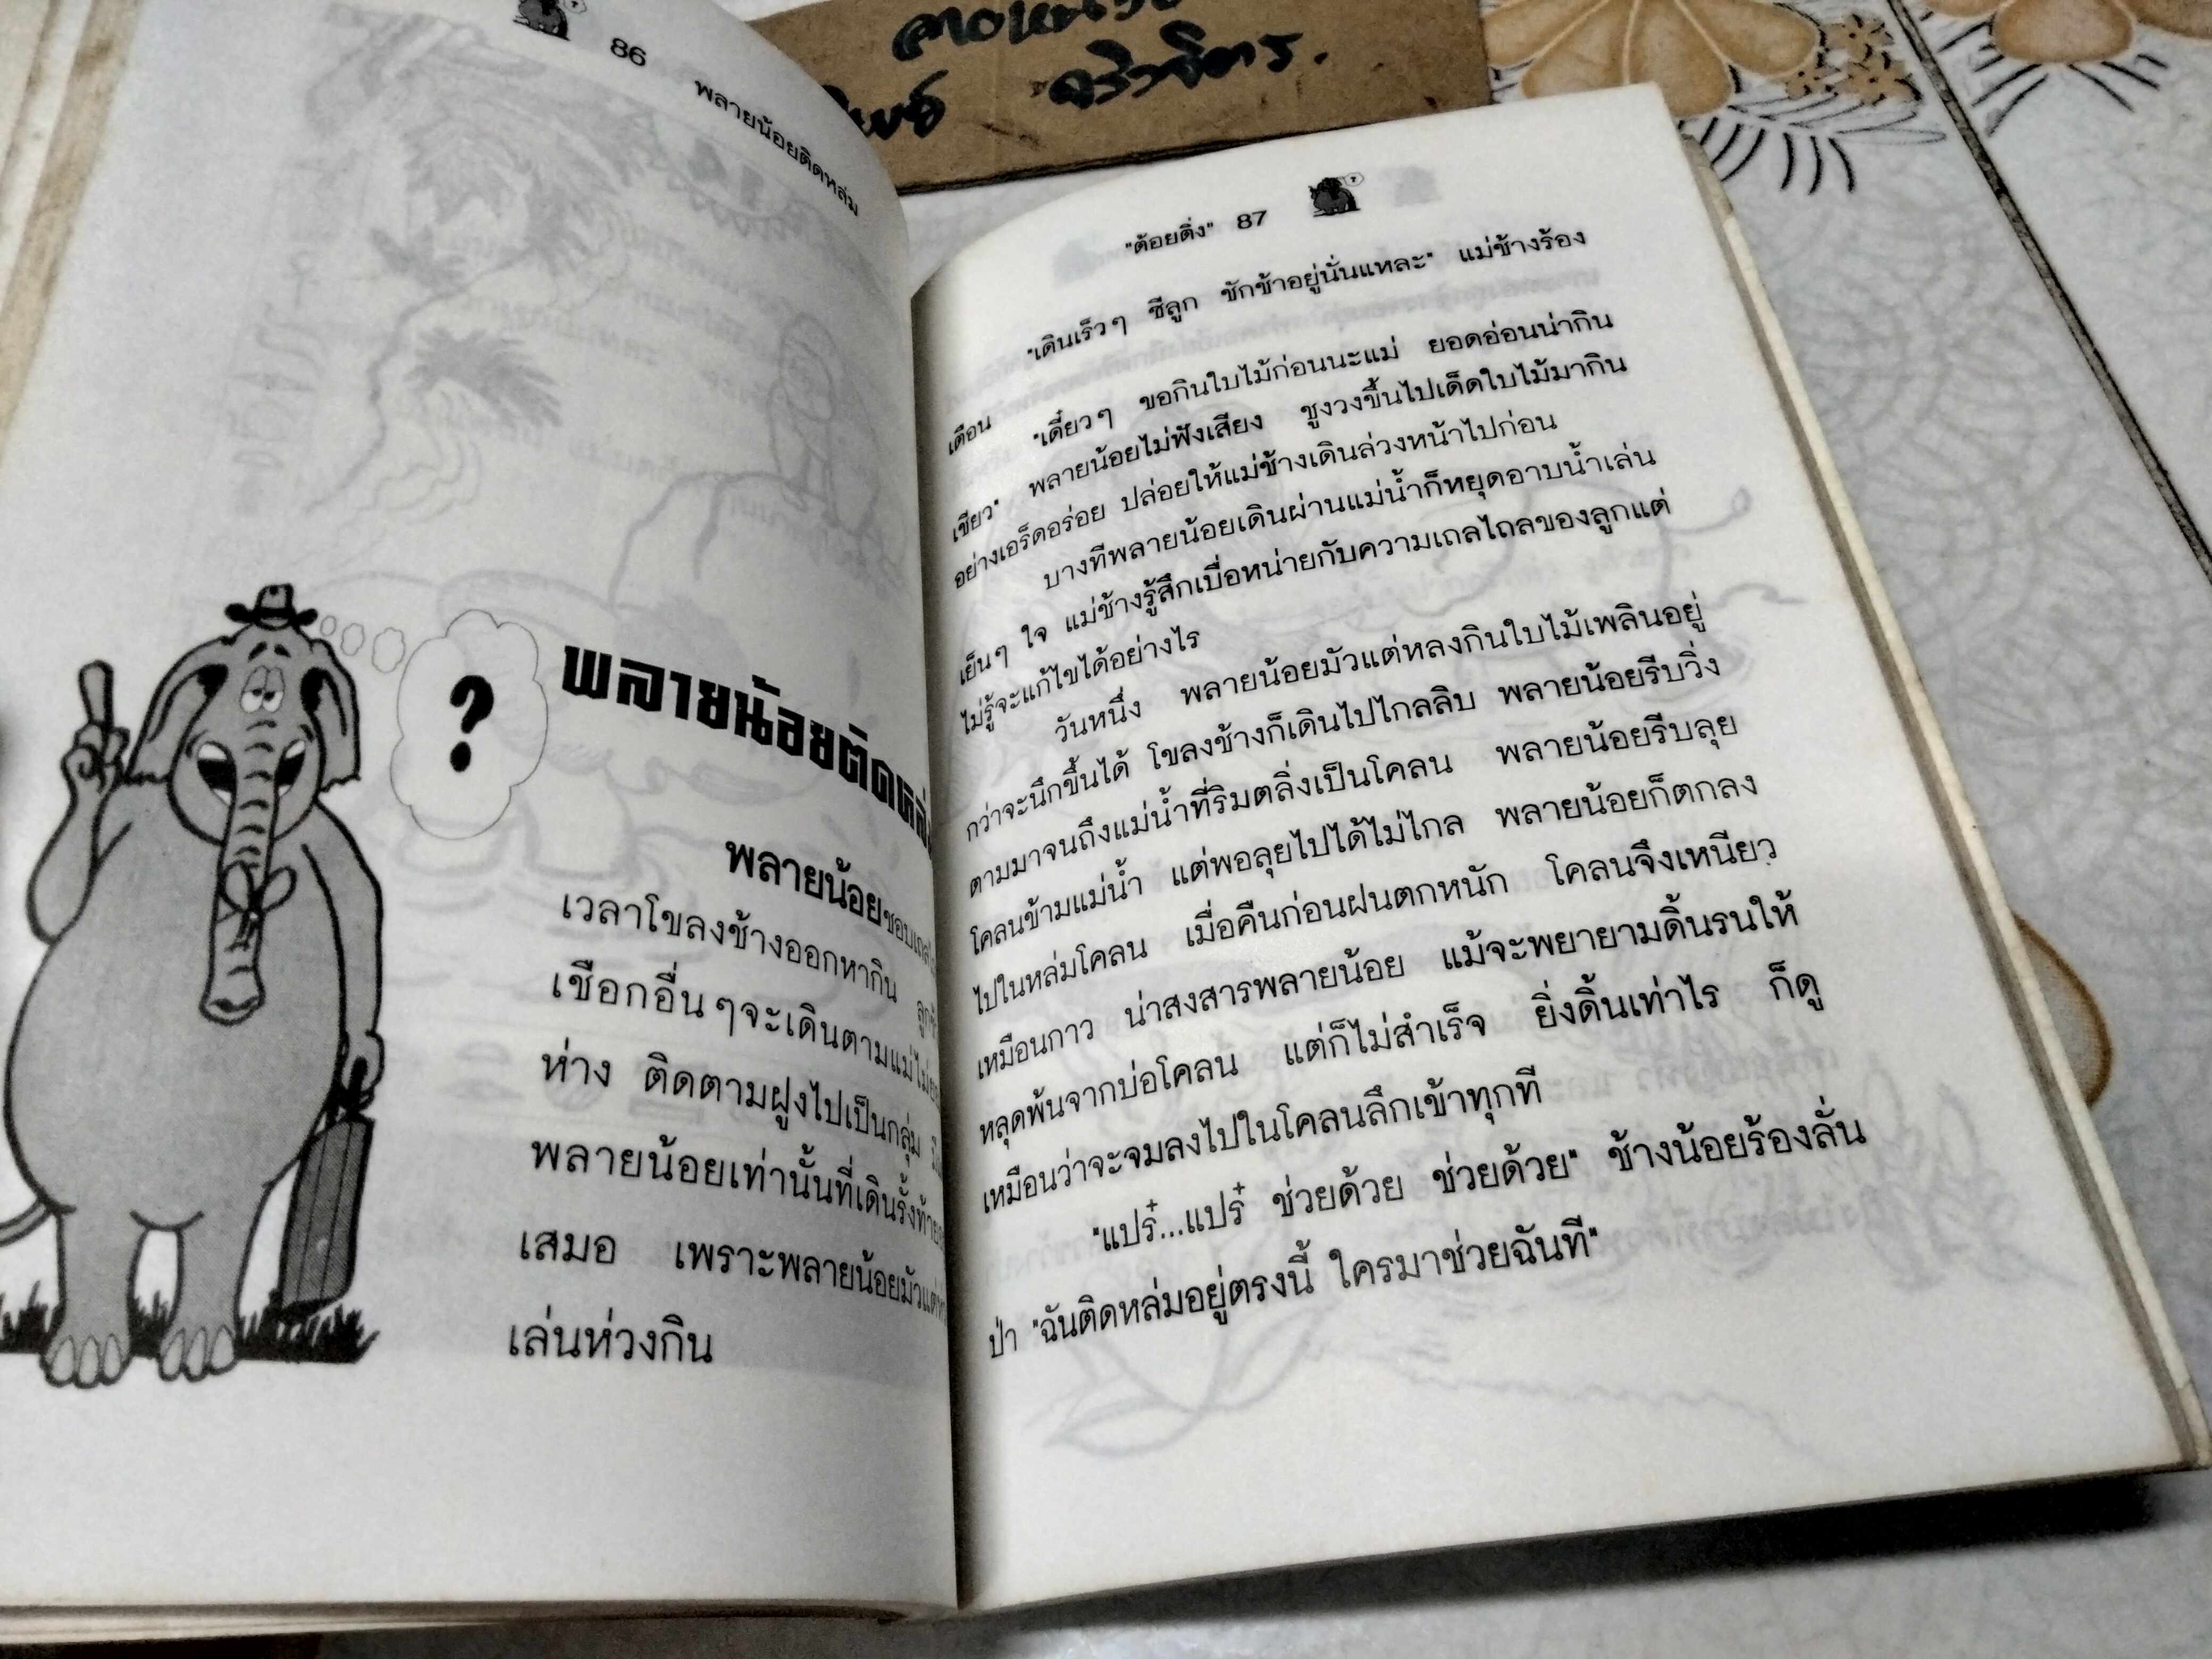 86 พลายน้อยติดหล่ม
พลายน้อยติดหล่
พลายน้อยชอบ
เวลาโขลงช้างออกหากิน
เชือกอื่นๆจะเดินตามแม่ไม่
ห่าง ติดตามฝูงไปเป็นกลุ่ม
พลายน้อยเท่านั้นที่เดินรั้งท้าย
เสมอ เพราะพลายน้อยมัวแต่
เล่นห่วงกิน
?
"ต้อยติ่ง" 87
"เดินเร็วๆ ซีลูก ชักช้าอยู่นั่นแหละ" แม่ช้างร้อง
เตือน
"เดี๋ยวๆ ขอกินใบไม้ก่อนนะแม่ ยอดอ่อนน่ากิน
เชียว" พลายน้อยไม่ฟังเสียง ชูงวงขึ้นไปเด็ดใบไม้มากิน
อย่างเอร็ดอร่อย ปล่อยให้แม่ช้างเดินล่วงหน้าไปก่อน
บางทีพลายน้อยเดินผ่านแม่น้ำก็หยุดอาบน้ำเล่น
เย็นๆ ใจ แม่ช้างรู้สึกเบื่อหน่ายกับความเถลไถลของลูกแต่
ไม่รู้จะแก้ไขได้อย่างไร
วันหนึ่ง พลายน้อยมัวแต่หลงกินใบไม้เพลินอยู่
กว่าจะนึกขึ้นได้ โขลงช้างก็เดินไปไกลลิบ พลายน้อยรีบวิ่ง
ตามมาจนถึงแม่น้ำที่ริมตลิ่งเป็นโคลน พลายน้อยรีบลุย
โคลนข้ามแม่น้ำ แต่พอลุยไปได้ไม่ไกล พลายน้อยก็ตกลง
ไปในหล่มโคลน เมื่อคืนก่อนฝนตกหนัก โคลนจึงเหนียว
เหมือนกาว น่าสงสารพลายน้อย แม้จะพยายามดิ้นรนให้
หลุดพ้นจากบ่อโคลน แต่ก็ไม่สำเร็จ ยิ่งดิ้นเท่าไร ก็ดู
เหมือนว่าจะจมลงไปในโคลนลึกเข้าทุกที
"แปร๋...แปร๋ ช่วยด้วย ช่วยด้วย" ช้างน้อยร้องลั่น
ป่า "ฉันติดหล่มอยู่ตรงนี้ ใครมาช่วยฉันที"